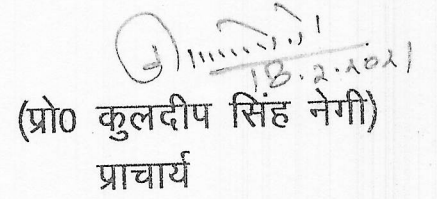 18.2.2021
(प्रो0 कुलदीप सिंह नेगी)
प्राचार्य